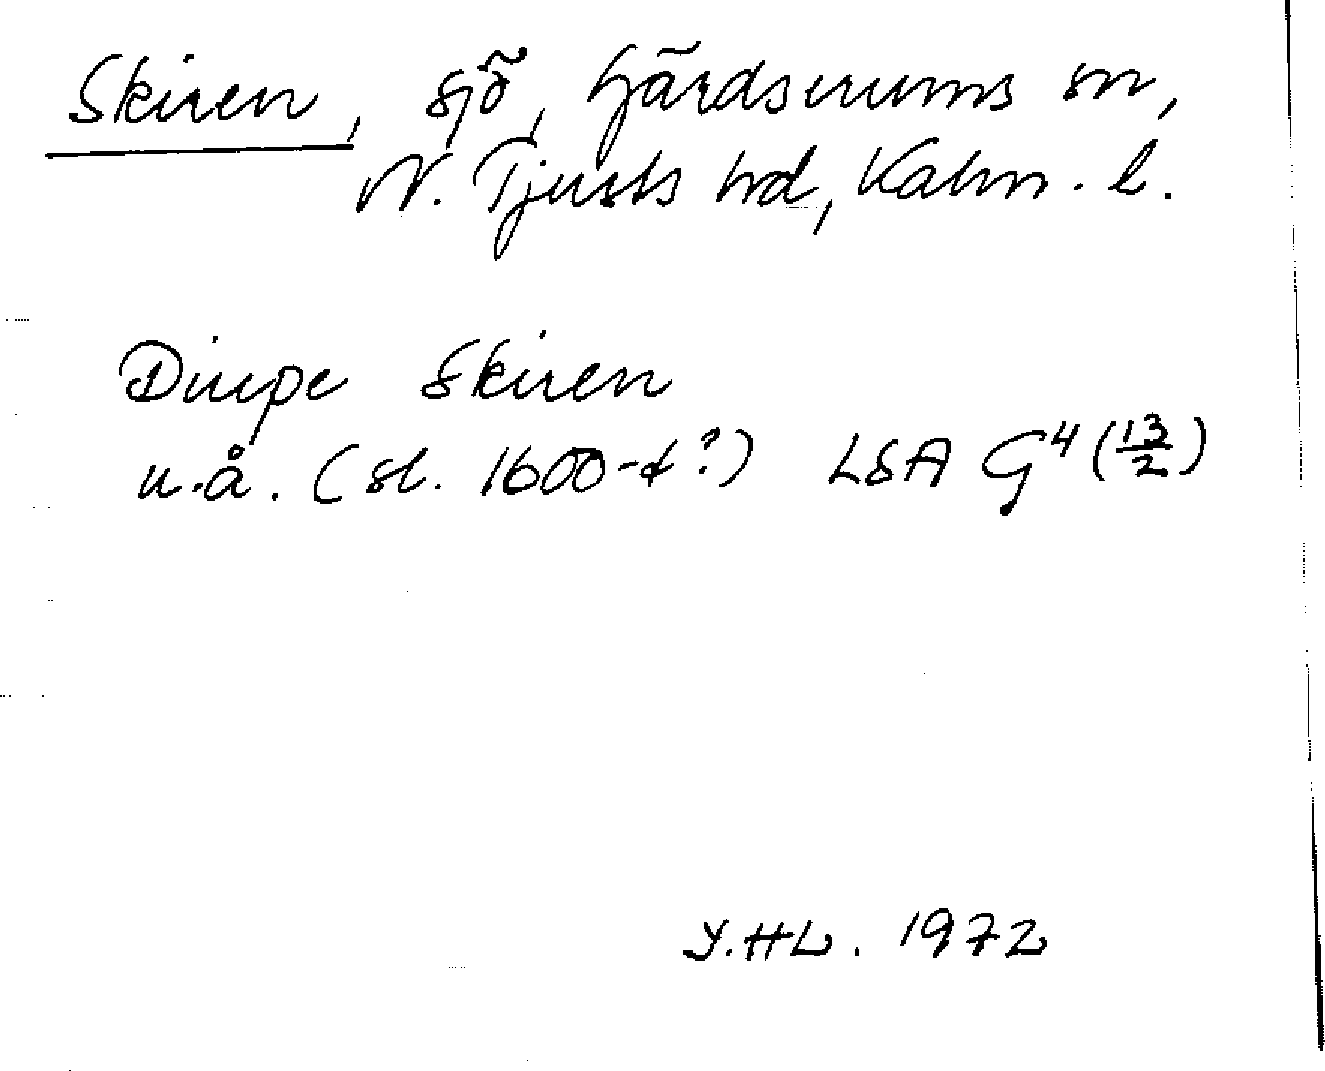 Skiren, sjö, Gärdserums sn,
N. Tjusts hd, Kalm. l.
Diupe Skiren
u.å. (sl. 1600-t?) LSA G⁴ (13/2)
Y.HL. 1972